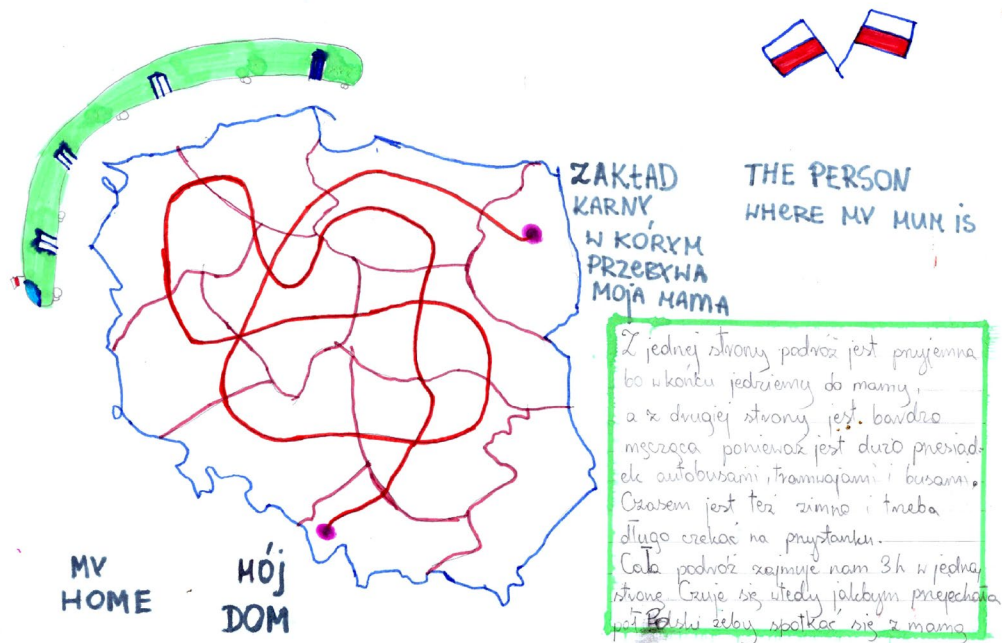 ZAKŁAD
KARNY,
W KÓRYM
PRZEBYWA
MOJA MAMA
THE PERSON
WHERE MY MUM IS
Z jednej strony podróż jest przyjemna
bo w końcu jedziemy do mamy,
a z drugiej strony jest bardzo
męcząca ponieważ jest dużo przesiad-
ek autobusami, tramwajami i busami.
Czasem jest też zimno i trzeba
długo czekać na przystanku.
Cała podróż zajmuje nam 3h w jedną
stronę. Czuje się wtedy jakbym przejechała
pół Polski żeby spotkać się z mamą
MY
HOME
MÓJ
DOM